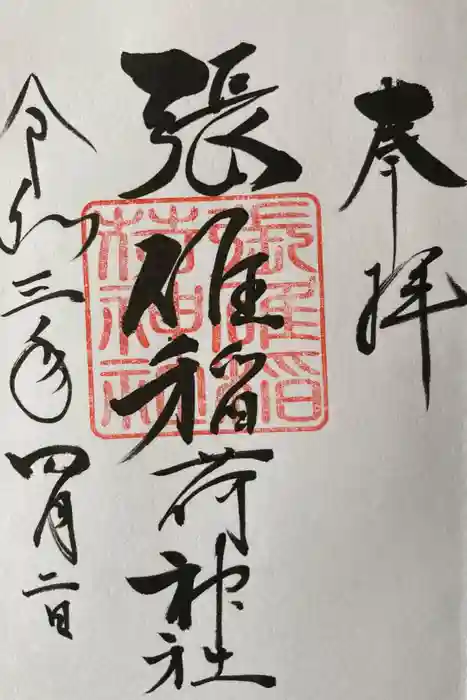 奉拝
張碓稲荷神社
張碓稲荷神社
令和三年四月二日